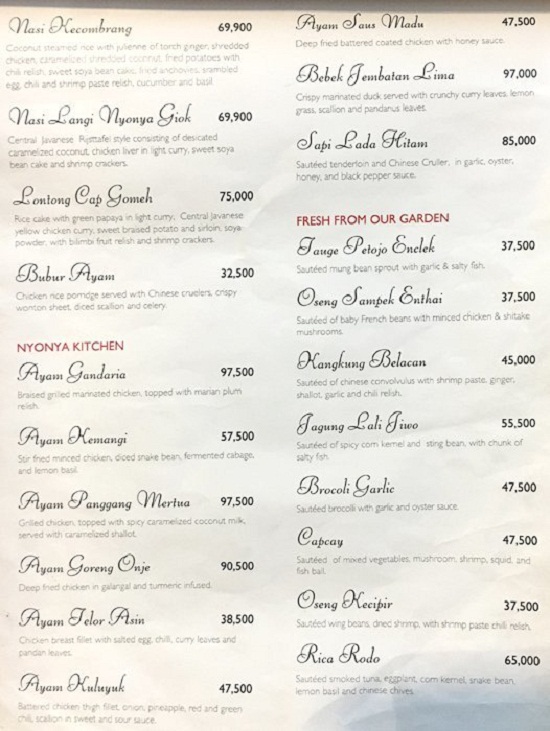 Nasi Kecombrang 69,900
Coconut steamed rice with julienne of torch ginger, shredded
chicken, caramelized shredded coconut, fried potatoes with
chili relish, sweet soya bean cake, fried anchovies, srambled
egg, chili and shrimp paste relish, cucumber and basil.
Nasi Langi Nyonya Giok 69,900
Central Javanese Rijsttafel style consisting of desicated
caramelized coconut, chicken liver in light curry, sweet soya
bean cake and shrimp crackers.
Lontong Cap Gomeh 75,000
Rice cake with green papaya in light curry, Central Javanese
yellow chicken curry, sweet braised potato and sirloin, soya
powder, with bilimbi fruit relish and shrimp crackers.
Bubur Ayam 32,500
Chicken rice porridge served with Chinese cruelers, crispy
wonton sheet, diced scallion and celery.
NYONYA KITCHEN
Ayam Gandaria 97,500
Braised grilled marinated chicken, topped with marian plum
relish.
Ayam Kemangi 57,500
Stir fried minced chicken, diced snake bean, fermented cabage,
and lemon basil.
Ayam Panggang Mertua 97,500
Grilled chicken, topped with spicy caramelized coconut milk,
served with caramelized shallot.
Ayam Goreng Onje 90,500
Deep fried chicken in galangal and turmeric infused.
Ayam Telor Asin 38,500
Chicken breast fillet with salted egg, chili, curry leaves and
pandan leaves.
Ayam Kuluyuk 47,500
Battered chicken thigh fillet, onion, pineapple, red and green
chili, scallion in sweet and sour sauce.
Ayam Saus Madu 47,500
Deep fried battered coated chicken with honey sauce.
Bebek Jembatan Lima 97,000
Crispy marinated duck served with crunchy curry leaves, lemon
grass, scallion and pandanus leaves.
Sapi Lada Hitam 85,000
Sautéed tenderloin and Chinese Cruller, in garlic, oyster,
honey, and black pepper sauce.
FRESH FROM OUR GARDEN
Tauge Petojo Enclek 37,500
Sautéed mung bean sprout with garlic & salty fish.
Oseng Sampek Enthai 37,500
Sautéed of baby French beans with minced chicken & shitake
mushrooms.
Kangkung Belacan 45,000
Sautéed of chinese convolvulus with shrimp paste, ginger,
shallot, garlic and chili relish.
Jagung Lali Jiwo 55,500
Sautéed of spicy corn kernel and sting bean, with chunk of
salty fish.
Brocoli Garlic 47,500
Sautéed brocolli with garlic and oyster sauce.
Capcay 47,500
Sautéed of mixed vegetables, mushroom, shrimp, squid, and
fish ball.
Oseng Kecipir 37,500
Sautéed wing beans, dried shrimp, with shrimp paste chili relish.
Rica Rodo 65,000
Sautéed smoked tuna, eggplant, corn kernel, snake bean,
lemon basil and chinese chives.